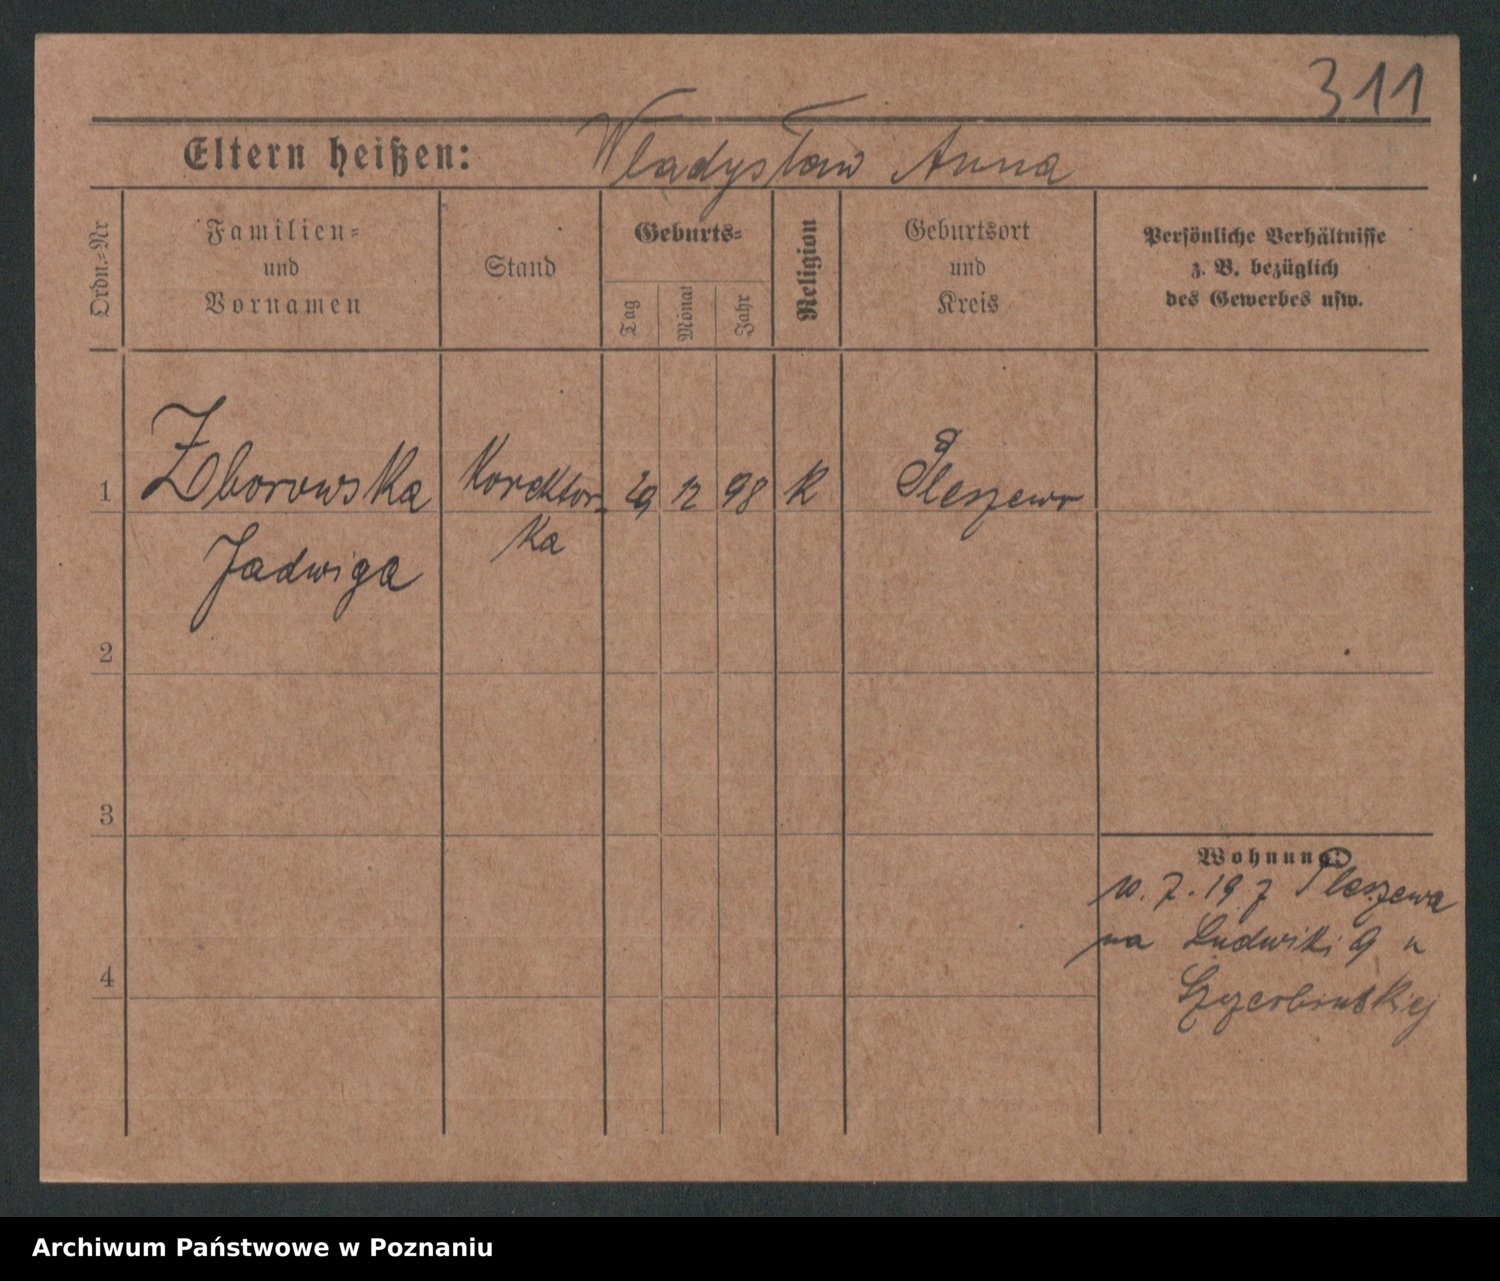 311
Eltern heißen: Władysław Anna
Ordn.=Nr
Familien=
und
Vornamen
Stand
Geburts=
Tag
Monat
Jahr
Religion
Geburtsort
und
Kreis
Persönliche Verhältnisse
z. B. bezüglich
des Gewerbes usw.
1 Zborowska Korektor- 29 12 98 K Pleszew
ka
Jadwiga
2
3
Wohnung:
10.7.19 z Pleszewa
na Ludwiki 9 u
4
Archiwum Państwowe w Poznaniu